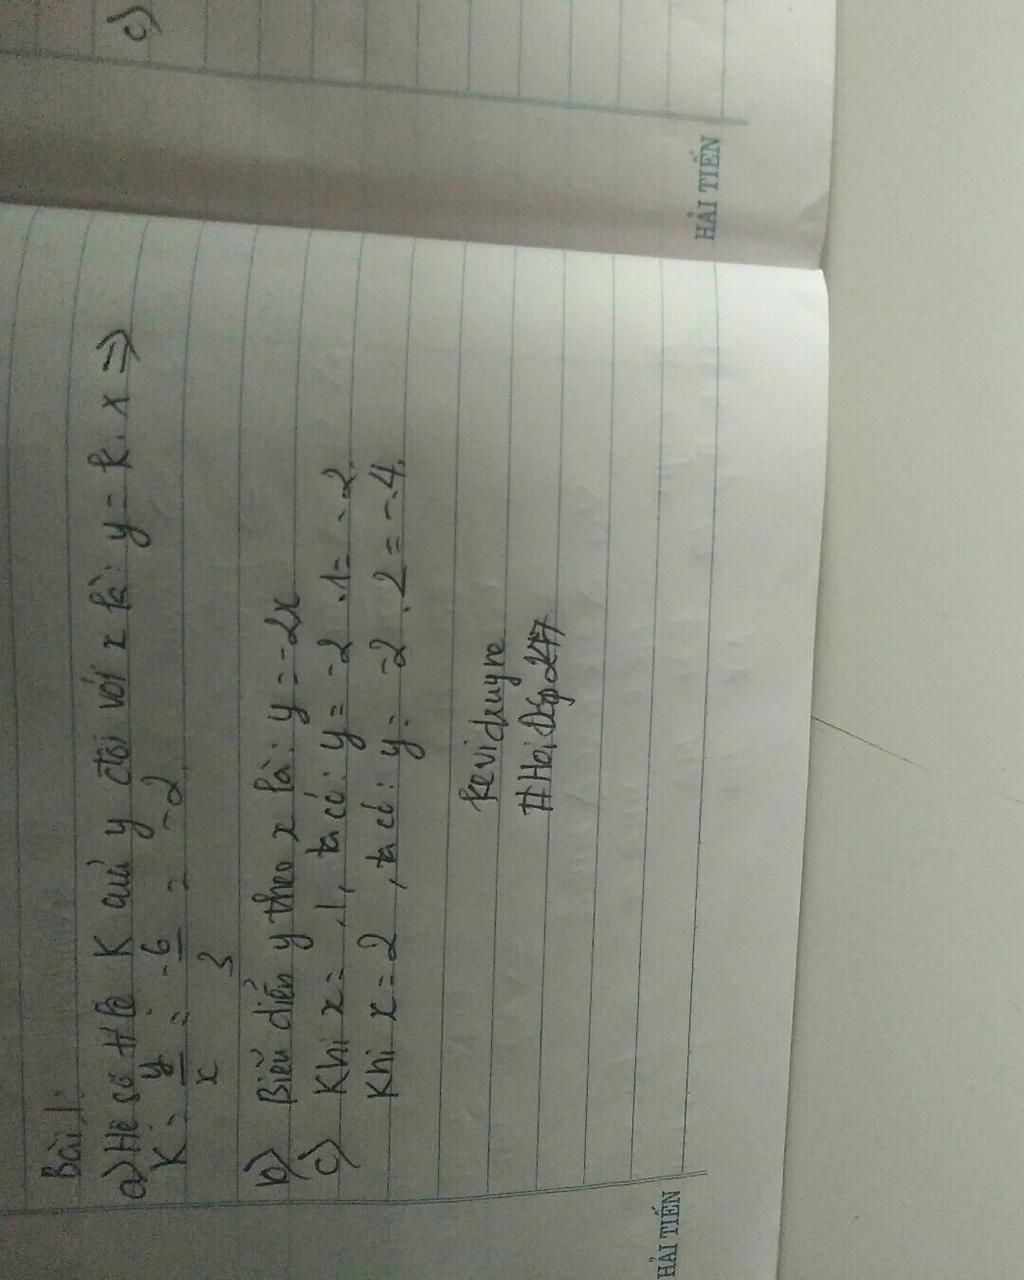 Bài 1:
a) Hệ số tỉ lệ K của y đối với x là: y = k. x =>
K = y/x = -6/3 = -2
b) Biểu diễn y theo x là: y = -2x
c) Khi x = 1, ta có: y = -2 .1 = -2
Khi x = 2, ta có: y = -2 . 2 = -4.
keviduyne
#HoiDap247
HẢI TIẾN
c)
HẢI TIẾN